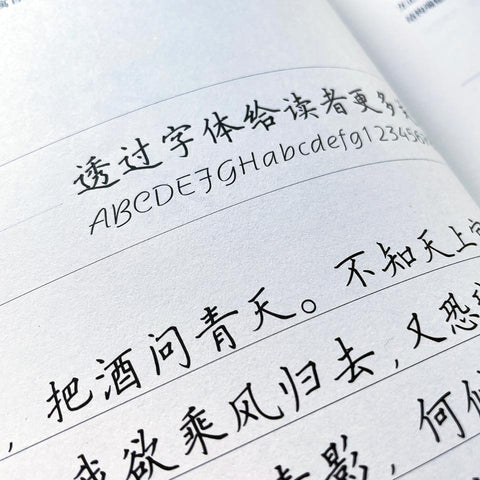 透过字体给读者更多
ABCDEFGHabcdefg123456
，把酒问青天。不知天上宫
欲乘风归去，又恐
影，何似